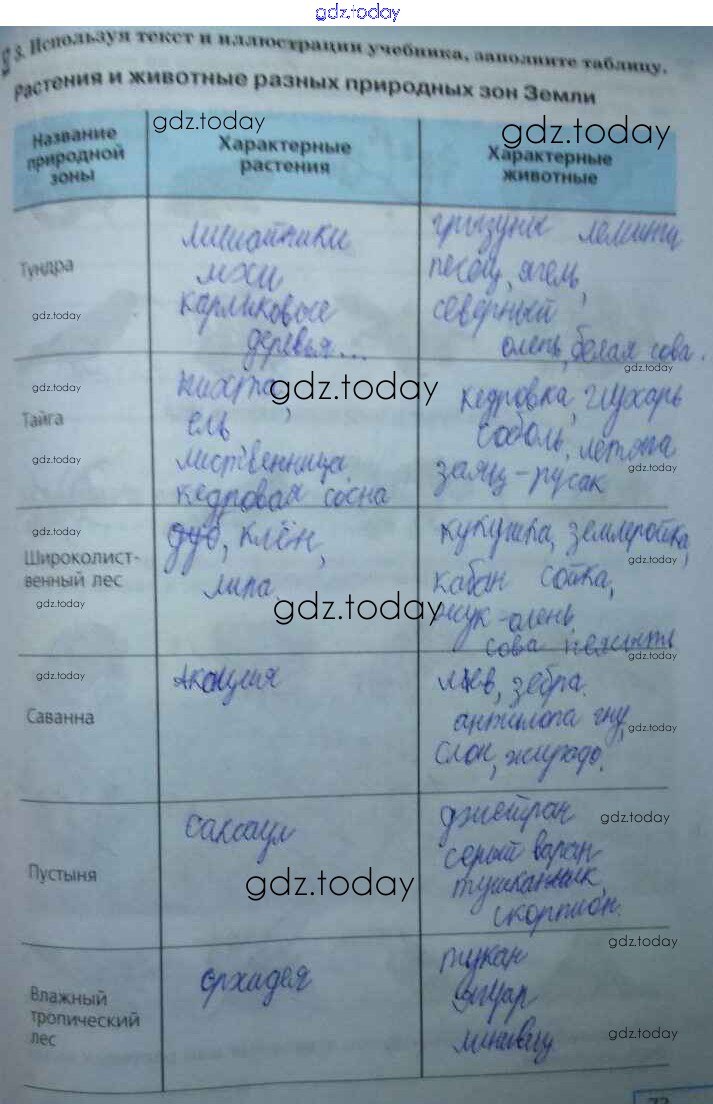 gdz.today
3. Используя текст и иллюстрации учебника, заполните таблицу.
Растения и животные разных природных зон Земли
gdz.today
gdz.today
Название природной зоны
Характерные растения
Характерные животные
Тундра
лишайники
мхи
карликовые
деревья...
грызуны лемминги
песец, ягель,
северный
олень, белая сова.
gdz.today
gdz.today
Тайга
gdz.today
gdz.today
пихта,
ель
лиственница
кедровая сосна
gdz.today
кедровка, глухарь
соболь, летяга
заяц-русак
gdz.today
Широколист-
венный лес
gdz.today
gdz.today
дуб, клён,
липа
gdz.today
кукушка, землеройка,
кабан сойка,
жук-олень,
сова неясыть
gdz.today
gdz.today
Саванна
gdz.today
Акация
лев, зебра.
антилопа гну,
слон, жираф.
gdz.today
Пустыня
саксаул
gdz.today
джейран
серый варан
тушканчик,
скорпион.
gdz.today
Влажный
тропический
лес
орхидея
тукан
ягуар
gdz.today
gdz.today